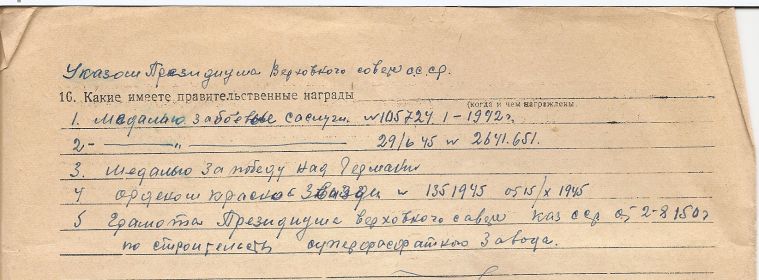 Указом Президиума Верховного совет сс ср.
16. Какие имеете правительственные награды
(когда и чем награждены
1. Медалью за боевые саслуги. № 105724 1-1942г.
2 - ——— " ——— 29/6 45 № 2641.651.
3. Медалью За победу над Германи
4 орденом красно Звезди № 1351945 от 15/х 1945
5 Грамота Президиума верховного савет каз сср от 2-8 150г
по строительств суперфосфатного Завода.